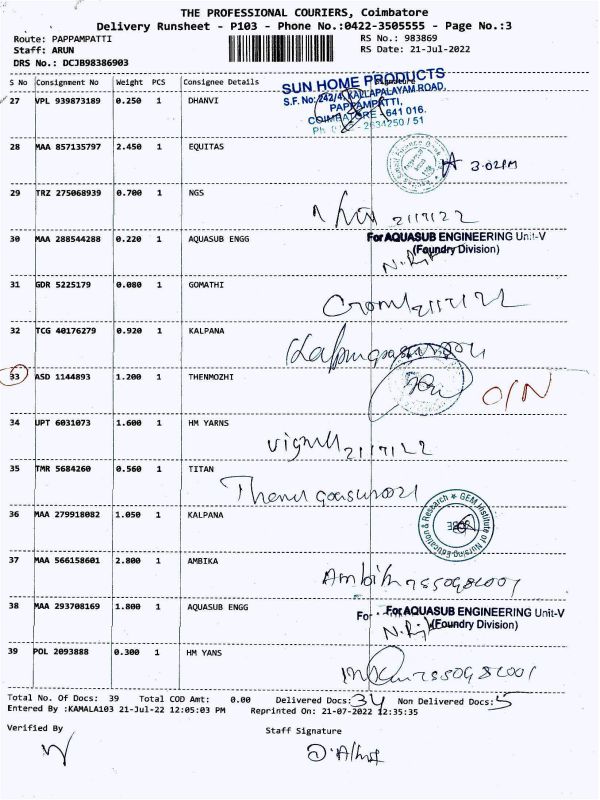 THE PROFESSIONAL COURIERS, Coimbatore
Delivery Runsheet - P103 - Phone No.:0422-3505555 - Page No.:3
Route: PAPPAMPATTI RS No.: 983869
Staff: ARUN RS Date: 21-Jul-2022
DRS No.: DCJB98386903
S No Consignment No Weight PCS Consignee Details Signature
SUN HOME PRODUCTS
S.F. No: 242/4, KALLAPALAYAM ROAD,
PAPPAMPATTI,
COIMBATORE - 641 016.
27 VPL 939873189 0.250 1 DHANVI
28 MAA 857135797 2.450 1 EQUITAS
3.02PM
29 TRZ 275068939 0.700 1 NGS
21/7/22
30 MAA 288544288 0.220 1 AQUASUB ENGG For AQUASUB ENGINEERING Unit-V
(Foundry Division)
31 GDR 5225179 0.080 1 GOMATHI
21/7/22
32 TCG 40176279 0.920 1 KALPANA
33 ASD 1144893 1.200 1 THENMOZHI
O/N
34 UPT 6031073 1.600 1 HM YARNS
21/7/22
35 TMR 5684260 0.560 1 TITAN
36 MAA 279918082 1.050 1 KALPANA
GEM Institute of Nursing Education & Research
37 MAA 566158601 2.800 1 AMBIKA
38 MAA 293708169 1.800 1 AQUASUB ENGG For AQUASUB ENGINEERING Unit-V
(Foundry Division)
39 POL 2093888 0.300 1 HM YANS
Total No. Of Docs: 39 Total COD Amt: 0.00 Delivered Docs: 34 Non Delivered Docs: 5
Entered By :KAMALA103 21-Jul-22 12:05:03 PM Reprinted On: 21-07-2022 12:35:35
Verified By Staff Signature